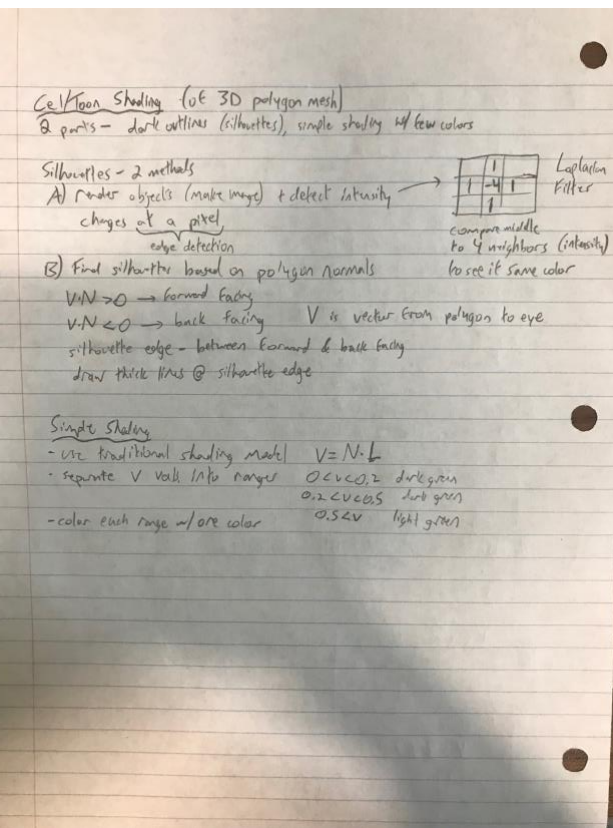 Cel/Toon Shading (of 3D polygon mesh)
2 parts - dark outlines (silhouettes), simple shading w/ few colors
Silhouettes - 2 methods
A) render objects (make image) + detect intensity
changes at a pixel
edge detection
1
1 -4 1
1
Laplacian
Filter
compare middle
to 4 neighbors (intensity)
to see if same color
B) Find silhouettes based on polygon normals
V·N > 0 → forward facing
V·N < 0 → back facing V is vector from polygon to eye
silhouette edge - between forward & back facing
draw thick lines @ silhouette edge
Simple Shading
- use traditional shading model V = N·L
- separate V vals into ranges 0<v<0.2 dark green
0.2<v<0.5 dark green
- color each range w/ one color 0.5<v light green